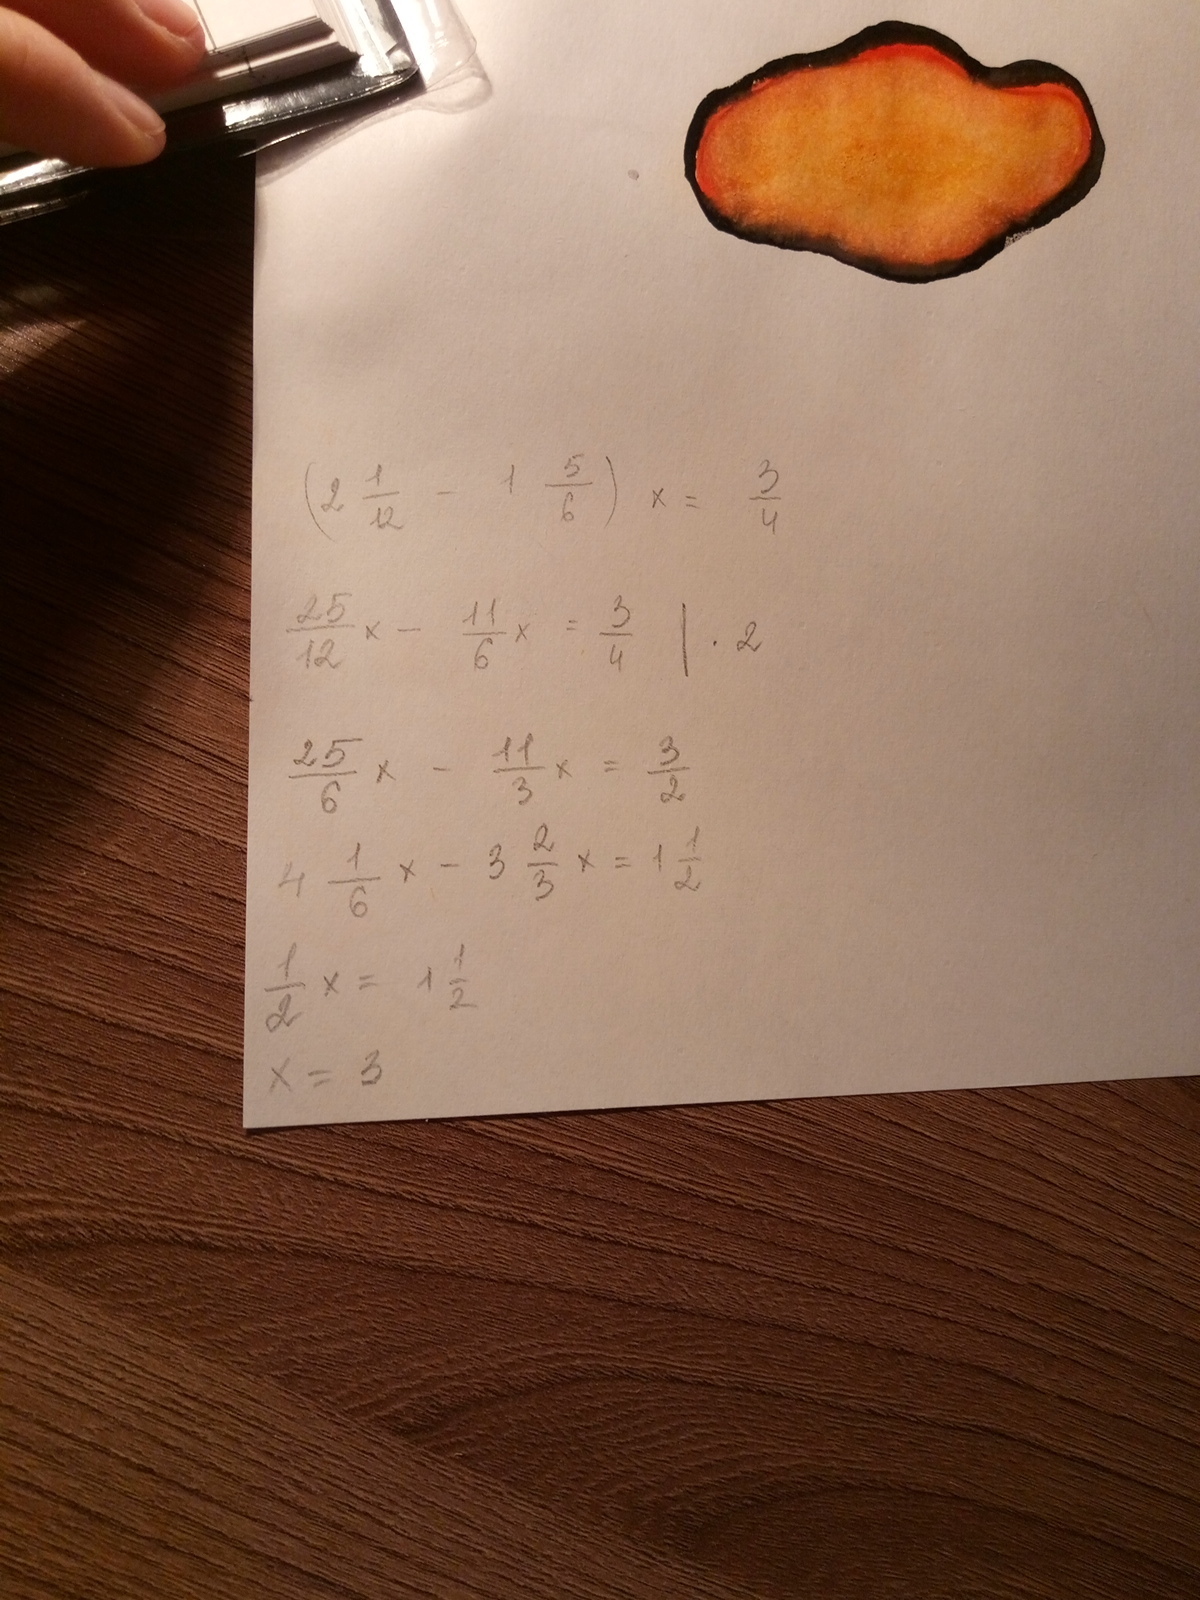 (2 1/12 - 1 5/6) x = 3/4
25/12 x - 11/6 x = 3/4 | · 2
25/6 x - 11/3 x = 3/2
4 1/6 x - 3 2/3 x = 1 1/2
1/2 x = 1 1/2
x = 3